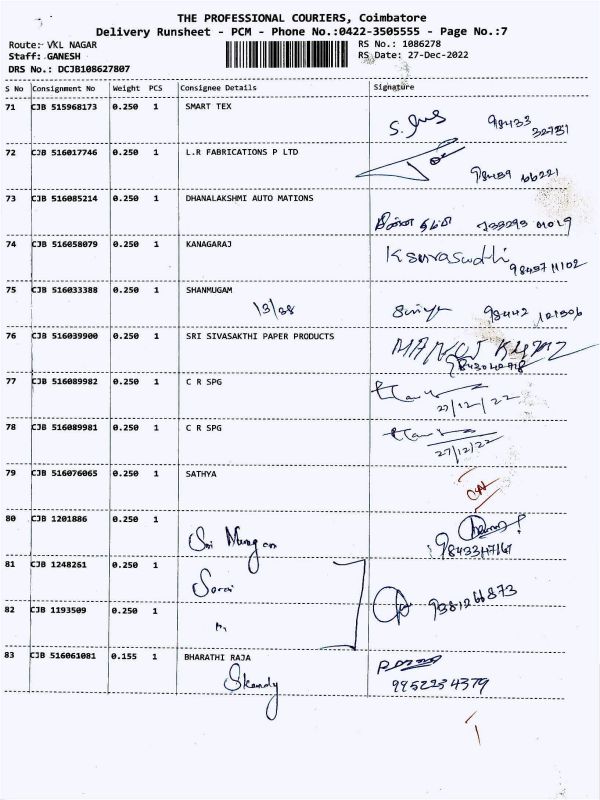 THE PROFESSIONAL COURIERS, Coimbatore
Delivery Runsheet - PCM - Phone No.:0422-3505555 - Page No.:7
Route: VKL NAGAR RS No.: 1086278
Staff: GANESH RS Date: 27-Dec-2022
DRS No.: DCJB108627807
S No Consignment No Weight PCS Consignee Details Signature
71 CJB 515968173 0.250 1 SMART TEX
98433
32751
72 CJB 516017746 0.250 1 L.R FABRICATIONS P LTD
98489 66221
73 CJB 516085214 0.250 1 DHANALAKSHMI AUTO MATIONS
74 CJB 516058079 0.250 1 KANAGARAJ
98437 11102
75 CJB 516033388 0.250 1 SHANMUGAM
13/38 98442 121306
76 CJB 516039900 0.250 1 SRI SIVASAKTHI PAPER PRODUCTS
MANOJ KUMAR
77 CJB 516089982 0.250 1 C R SPG
27/12/22
78 CJB 516089981 0.250 1 C R SPG
27/12/22
79 CJB 516076065 0.250 1 SATHYA
80 CJB 1201886 0.250 1
Sri Murugan
9843347161
81 CJB 1248261 0.250 1
9381266873
82 CJB 1193509 0.250 1
83 CJB 516061081 0.155 1 BHARATHI RAJA
9952234379